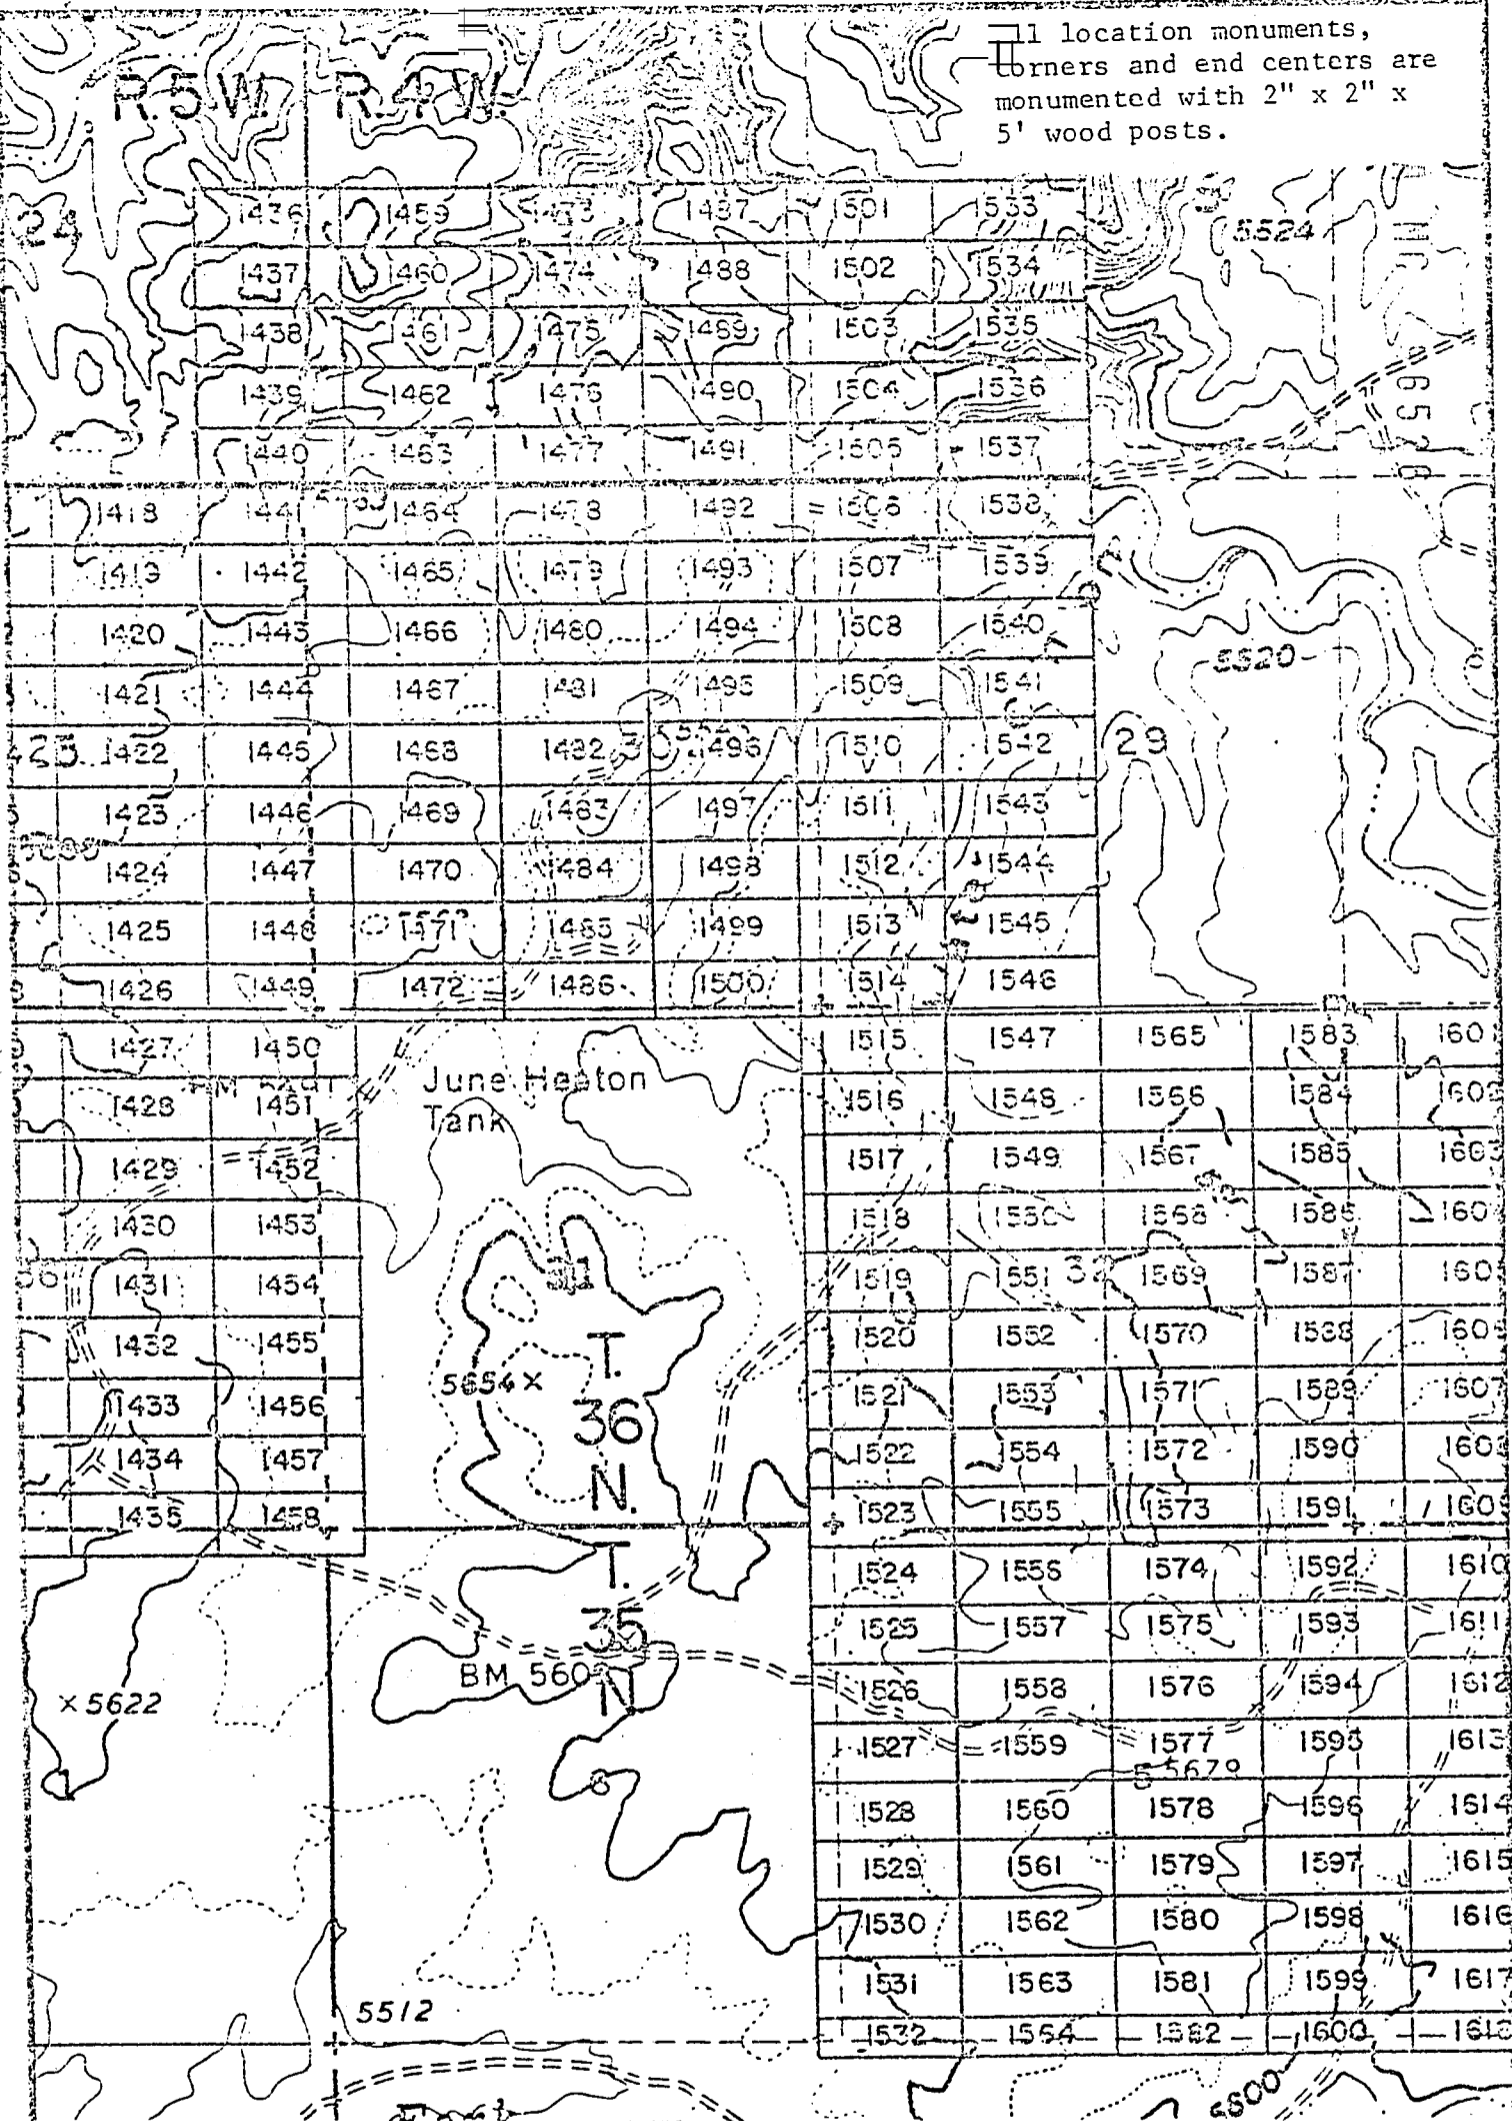 11 location monuments,
corners and end centers are
monumented with 2" x 2" x
5' wood posts.
R.5W. R.4W.
24
1436 1459 1473 1487 1501 1533
5524
1437 1460 1474 1488 1502 1534
1438 1461 1475 1489 1503 1535
1439 1462 1476 1490 1504 1536
1440 1463 1477 1491 1505 1537
1418 1441 1464 1478 1492 1506 1538
1419 1442 1465 1479 1493 1507 1539
1420 1443 1466 1480 1494 1508 1540
5520
1421 1444 1467 1481 1495 1509 1541
1422 1445 1468 1482 1496 1510 1542 29
1423 1446 1469 1483 1497 1511 1543
1424 1447 1470 1484 1498 1512 1544
1425 1448 1471 1485 1499 1513 1545
1426 1449 1472 1486 1500 1514 1546
1427 1450 1515 1547 1565 1583 160
June Heaton
Tank
1428 1451 1516 1548 1566 1584 1602
1429 1452 1517 1549 1567 1585 1603
1430 1453 1518 1550 1568 1586 160
1431 1454 31 1519 1551 32 1569 1587 160
1432 1455 1520 1552 1570 1588 1606
5654 ×
T.
36
N.
1433 1456 1521 1553 1571 1589 1607
1434 1457 1522 1554 1572 1590 1608
1435 1458 1523 1555 1573 1591 1609
T.
35
N
1524 1556 1574 1592 1610
1525 1557 1575 1593 1611
BM 560
× 5622
1526 1558 1576 1594 1612
1527 1559 1577 1595 1613
5 5679
6
1528 1560 1578 1596 1614
1529 1561 1579 1597 1615
1530 1562 1580 1598 1616
1531 1563 1581 1599 1617
5512
1532 1564 1582 1600 1618
5600